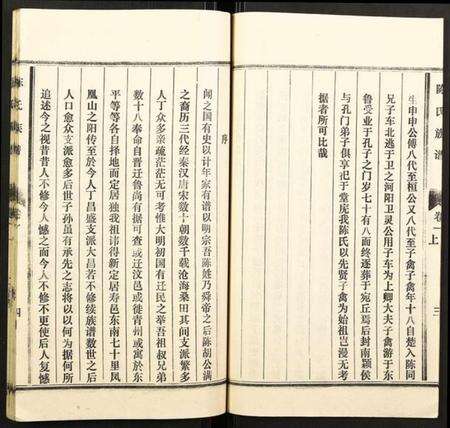 陈氏族谱
卷一上
三
生申申公傅八代至桓公又八代至子禽子禽年十八自楚入陈同
兄子车北逃于卫之河阳卫灵公用子车为上卿大夫子禽游于东
鲁受业于孔子之门岁七十有八而终遂葬于宛丘焉后封南颖侯
与孔门弟子俱享祀于堂庑我陈氏以先贤子禽为始祖岂漫无考
据者所可比哉
序
闻之国有史以计年家有谱以明宗吾陈姓乃舜帝之后陈胡公满
之裔历三代经秦汉唐宋数十朝数千载沧海桑田其间支派繁多
人丁众多亲疏茫茫无可考惟大明初国有迁民之举吾祖叔兄弟
数十八奉命自晋迁鲁尚有据可查或迁汶邑或徙青州或寓於东
平等等各自择地而定居独我祖讳得新定居寿邑东南七十里凤
凰山之阳传至於今人丁昌盛支派大昌若不修续族谱数世之后
人口愈众支派愈多后世子孙虽有承先之志将以以何为据何所
追述今之视昔昔人不修今人憾之而今人不修不更使后人复憾
四